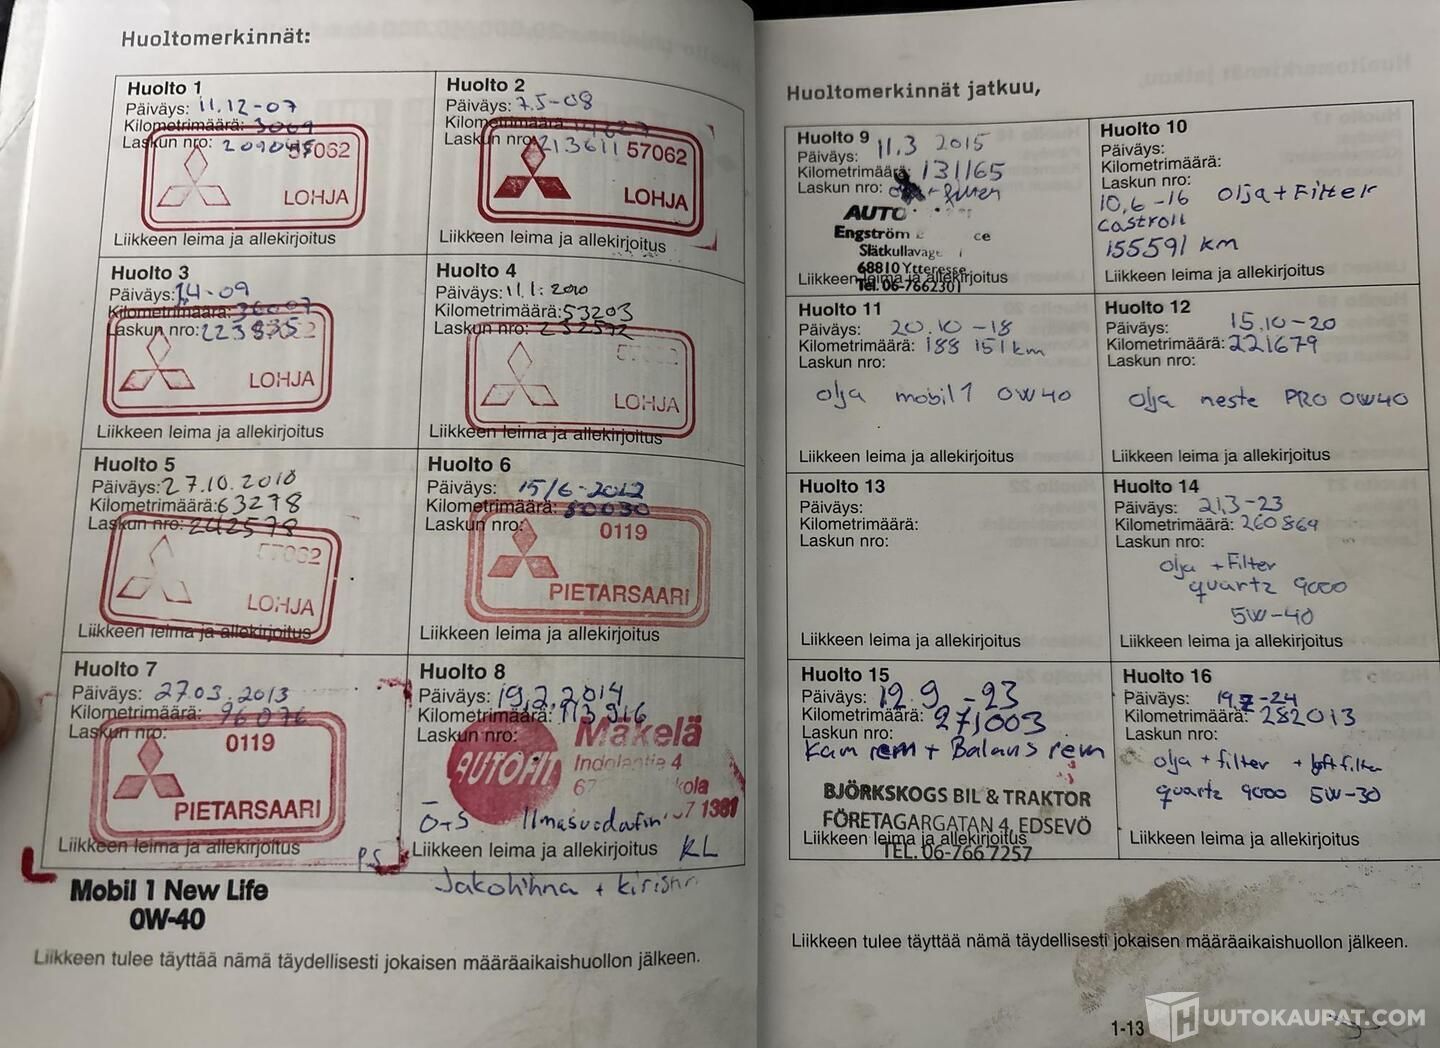 Huoltomerkinnät:
Huolto 1
Päiväys: 11.12-07
Kilometrimäärä: 3069
Laskun nro: 209045
57062
LOHJA
Liikkeen leima ja allekirjoitus
Huolto 2
Päiväys: 7.5-08
Kilometrimäärä:
Laskun nro: 213611
57062
LOHJA
Liikkeen leima ja allekirjoitus
Huolto 3
Päiväys: -09
Kilometrimäärä: 36007
Laskun nro: 223835
LOHJA
Liikkeen leima ja allekirjoitus
Huolto 4
Päiväys: 11.1.2010
Kilometrimäärä: 53203
Laskun nro: 232572
LOHJA
Liikkeen leima ja allekirjoitus
Huolto 5
Päiväys: 27.10.2010
Kilometrimäärä: 63278
Laskun nro: 242578
57062
LOHJA
Liikkeen leima ja allekirjoitus
Huolto 6
Päiväys: 15/6-2012
Kilometrimäärä: 80030
Laskun nro:
0119
PIETARSAARI
Liikkeen leima ja allekirjoitus
Huolto 7
Päiväys: 27.03.2013
Kilometrimäärä: 96076
Laskun nro:
0119
PIETARSAARI
Liikkeen leima ja allekirjoitus P.S
Mobil 1 New Life
0W-40
Huolto 8
Päiväys: 19.2.2014
Kilometrimäärä: 113916
Laskun nro:
AUTOFIT
Mäkelä
4
67
Ö-S
Liikkeen leima ja allekirjoitus KL
Jakohihna +
Liikkeen tulee täyttää nämä täydellisesti jokaisen määräaikaishuollon jälkeen.
Huoltomerkinnät jatkuu,
Huolto 9
Päiväys: 11.3 2015
Kilometrimäärä: 131165
Laskun nro:
AUTO
Engström
68810 Ytteresse
Liikkeen leima ja allekirjoitus
Tel. 06-7662301
Huolto 10
Päiväys:
Kilometrimäärä:
Laskun nro:
10.6-16 olja + Filter
castroll
155591 km
Liikkeen leima ja allekirjoitus
Huolto 11
Päiväys: 20.10-18
Kilometrimäärä: 188 151 km
Laskun nro:
olja mobil 1 0W40
Liikkeen leima ja allekirjoitus
Huolto 12
Päiväys: 15.10-20
Kilometrimäärä: 221679
Laskun nro:
olja neste PRO 0W40
Liikkeen leima ja allekirjoitus
Huolto 13
Päiväys:
Kilometrimäärä:
Laskun nro:
Liikkeen leima ja allekirjoitus
Huolto 14
Päiväys: 21.3-23
Kilometrimäärä: 260869
Laskun nro:
olja + Filter
quartz 9000
5W-40
Liikkeen leima ja allekirjoitus
Huolto 15
Päiväys: 12.9-23
Kilometrimäärä: 271003
Laskun nro:
Kam rem + Balans rem
BJÖRKSKOGS BIL & TRAKTOR
FÖRETAGARGATAN 4, EDSEVÖ
Liikkeen leima ja allekirjoitus
TEL. 06-766 7257
Huolto 16
Päiväys: 19.7-24
Kilometrimäärä: 282013
Laskun nro:
olja + filter + luftfilter
quartz 9000 5W-30
Liikkeen leima ja allekirjoitus
Liikkeen tulee täyttää nämä täydellisesti jokaisen määräaikaishuollon jälkeen.
1-13
HUUTOKAUPAT.COM